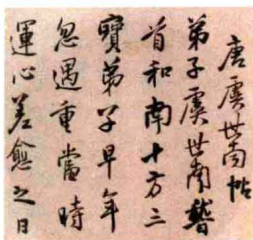 唐虞世南帖
弟子虞世南稽
首和南十方三
寶弟子早年
忽遇重當時
運心差愈之日